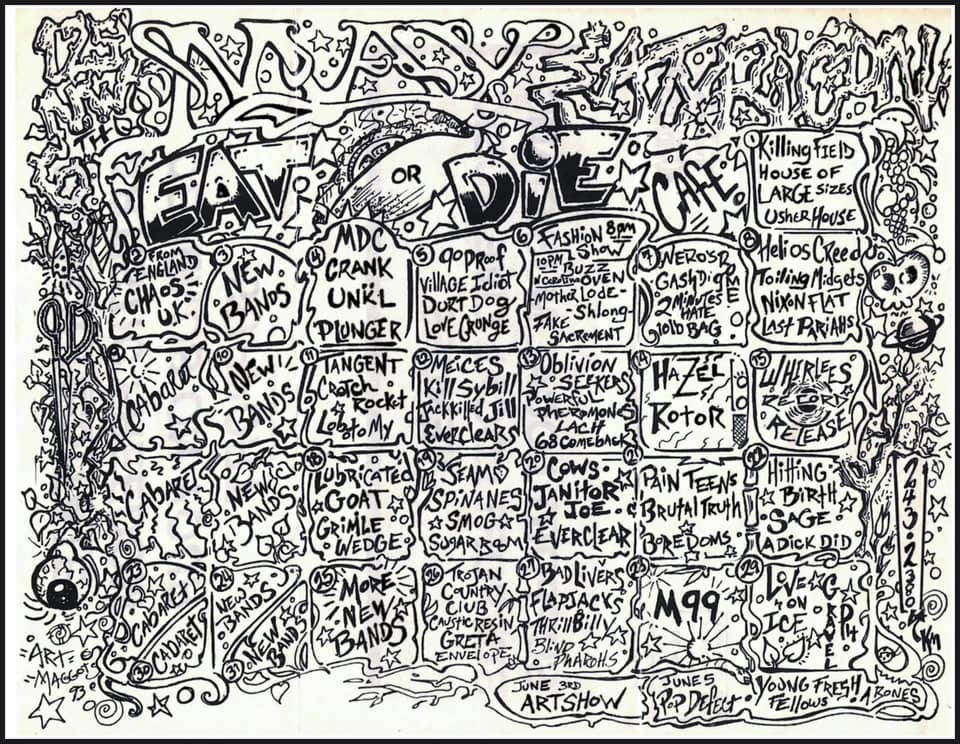 MAY
EATRAGON!
EAT
OR
DiE
CAFE
1
Killing FiELD
HOUSE OF
LARGE SIZES
USHER HOUSE
2
FROM
ENGLAND
CHAOS
U.K.
3
NEW
BANDS
4
MDC
CRANK
UNKL
PLUNGER
5
90 PROOF
ViLLAGE IdIot
DURT DOG
LOVE GRUNGE
6
FASHION 8PM
Show
10PM BUZZ
OVEN
Mother Lode
Shlong
FAKE
SACREMENT
7
NERO'S
ROME
GASH Dig
2 Minutes
HATE
10lb BAG
8
HeliOS CReed
Toiling Midgets
NIXON FLAT
LAST PARIAHS
9
CABARET
10
NEW
BANDS
11
TANGENT
Crotch
Rocket
LobotoMy
12
MEiCES
Kill Sybill
Jack Killed Jill
EVERCLEAR
13
Oblivion
SEEKERS
POWERFUL
PHEROMONES
LACH
68 ComEbacK
14
HAZEL
ROTOR
15
WHERLEES
RECORD
RELEASE
CABARET
NEW
BANDS
18
LUbRiCATED
GOAT
GRIMLE
WEDGE
19
SEAM
SPiNANES
SMOG
SUGARBOOM
20
COWS
JANiTOR
JOE
EVERCLEAR
21
PAiN TEENS
BRUTAL TRUTH
BOREDOMS
22
HITTING
BIRTH
SAGE
A DICK DID
23
CABARET
30
CABARET
24
NEW
BANDS
31
NEW
BANDS
25
MORE
NEW
BANDS
26
TROJAN
COUNTRY
CLUB
CAUSTIC RESIN
GRETA
ENVELOPE
27
BAD LIVERS
FLAPJACKS
THRillBilly
BLiND
PHAROHS
28
M99
29
LOVE
ON
ICE
GRAVEL
P4
243-2380
=ART=
=MAGGOTS
93
JUNE 3RD
ARTSHOW
JUNE 5
POP DEFECT
YOUNG FRESH
FELLOWS
A BONES